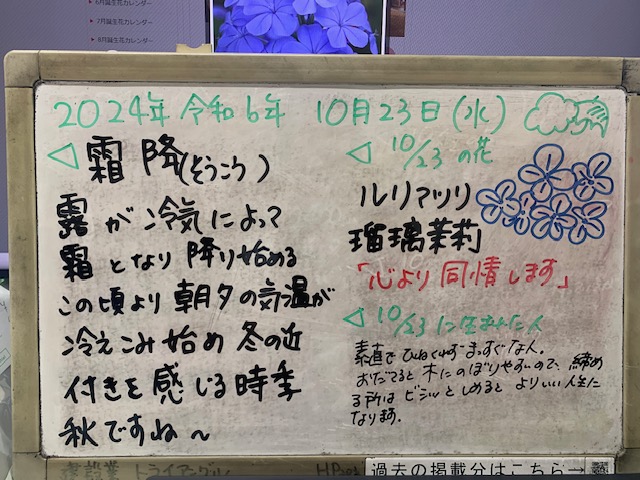 6月誕生花カレンダー
7月誕生花カレンダー
8月誕生花カレンダー
2024年 令和6年 10月23日(水)
霜降(そうこう)
露が冷気によって
霜となり降り始める
この頃より朝夕の気温が
冷えこみ始め冬の近
付きを感じる時季
秋ですね～
10/23 の花
ルリマツリ
瑠璃茉莉
「心より同情します」
10/23に生まれた人
素直でひねくれずまっすぐな人。
おだてると木にのぼりやすいので、締め
る所はビシッとしめるとよりいい人生に
なります。
トライアングル
過去の掲載分はこちら→